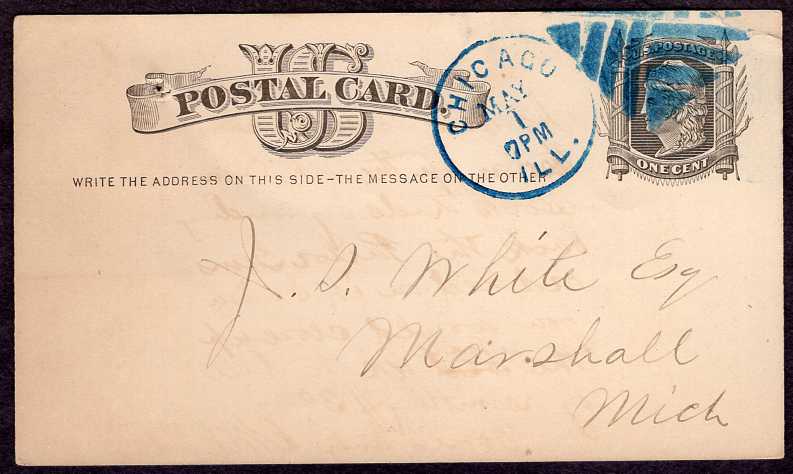 US
POSTAL CARD.
U.S. POSTAGE
ONE CENT
CHICAGO
MAY
1
PM
ILL.
WRITE THE ADDRESS ON THIS SIDE – THE MESSAGE ON THE OTHER
J. S. White Esq
Marshall
Mich